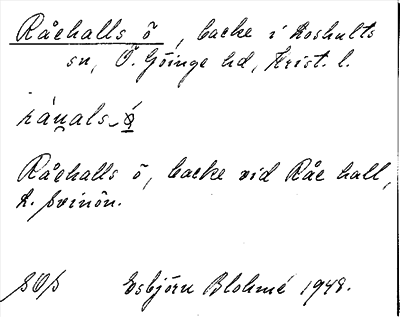 Råehalls ö, backe i Loshults
sn, Ö. Göinge hd, Krist. l.
Råehalls ö, backe vid Råe hall,
Esbjörn Blohmé 1948.